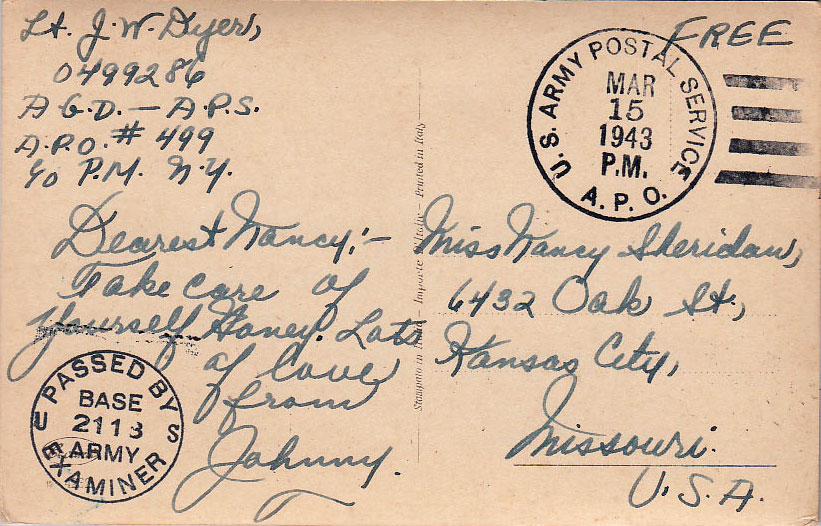 Lt. J. W. Dyer,
0499286
A.G.D. — A.P.S.
A.P.O. # 499
c/o P.M. N.Y.
FREE
U.S. ARMY POSTAL SERVICE
MAR
15
1943
P.M.
A.P.O.
Dearest Nancy:—
Take care of
yourself Honey. Lots
of love
from
Johnny.
Miss Nancy Sheridan,
6432 Oak St.,
Kansas City,
Missouri.
U.S.A.
Printed in Italy
PASSED BY
U S
BASE
2113
ARMY
EXAMINER